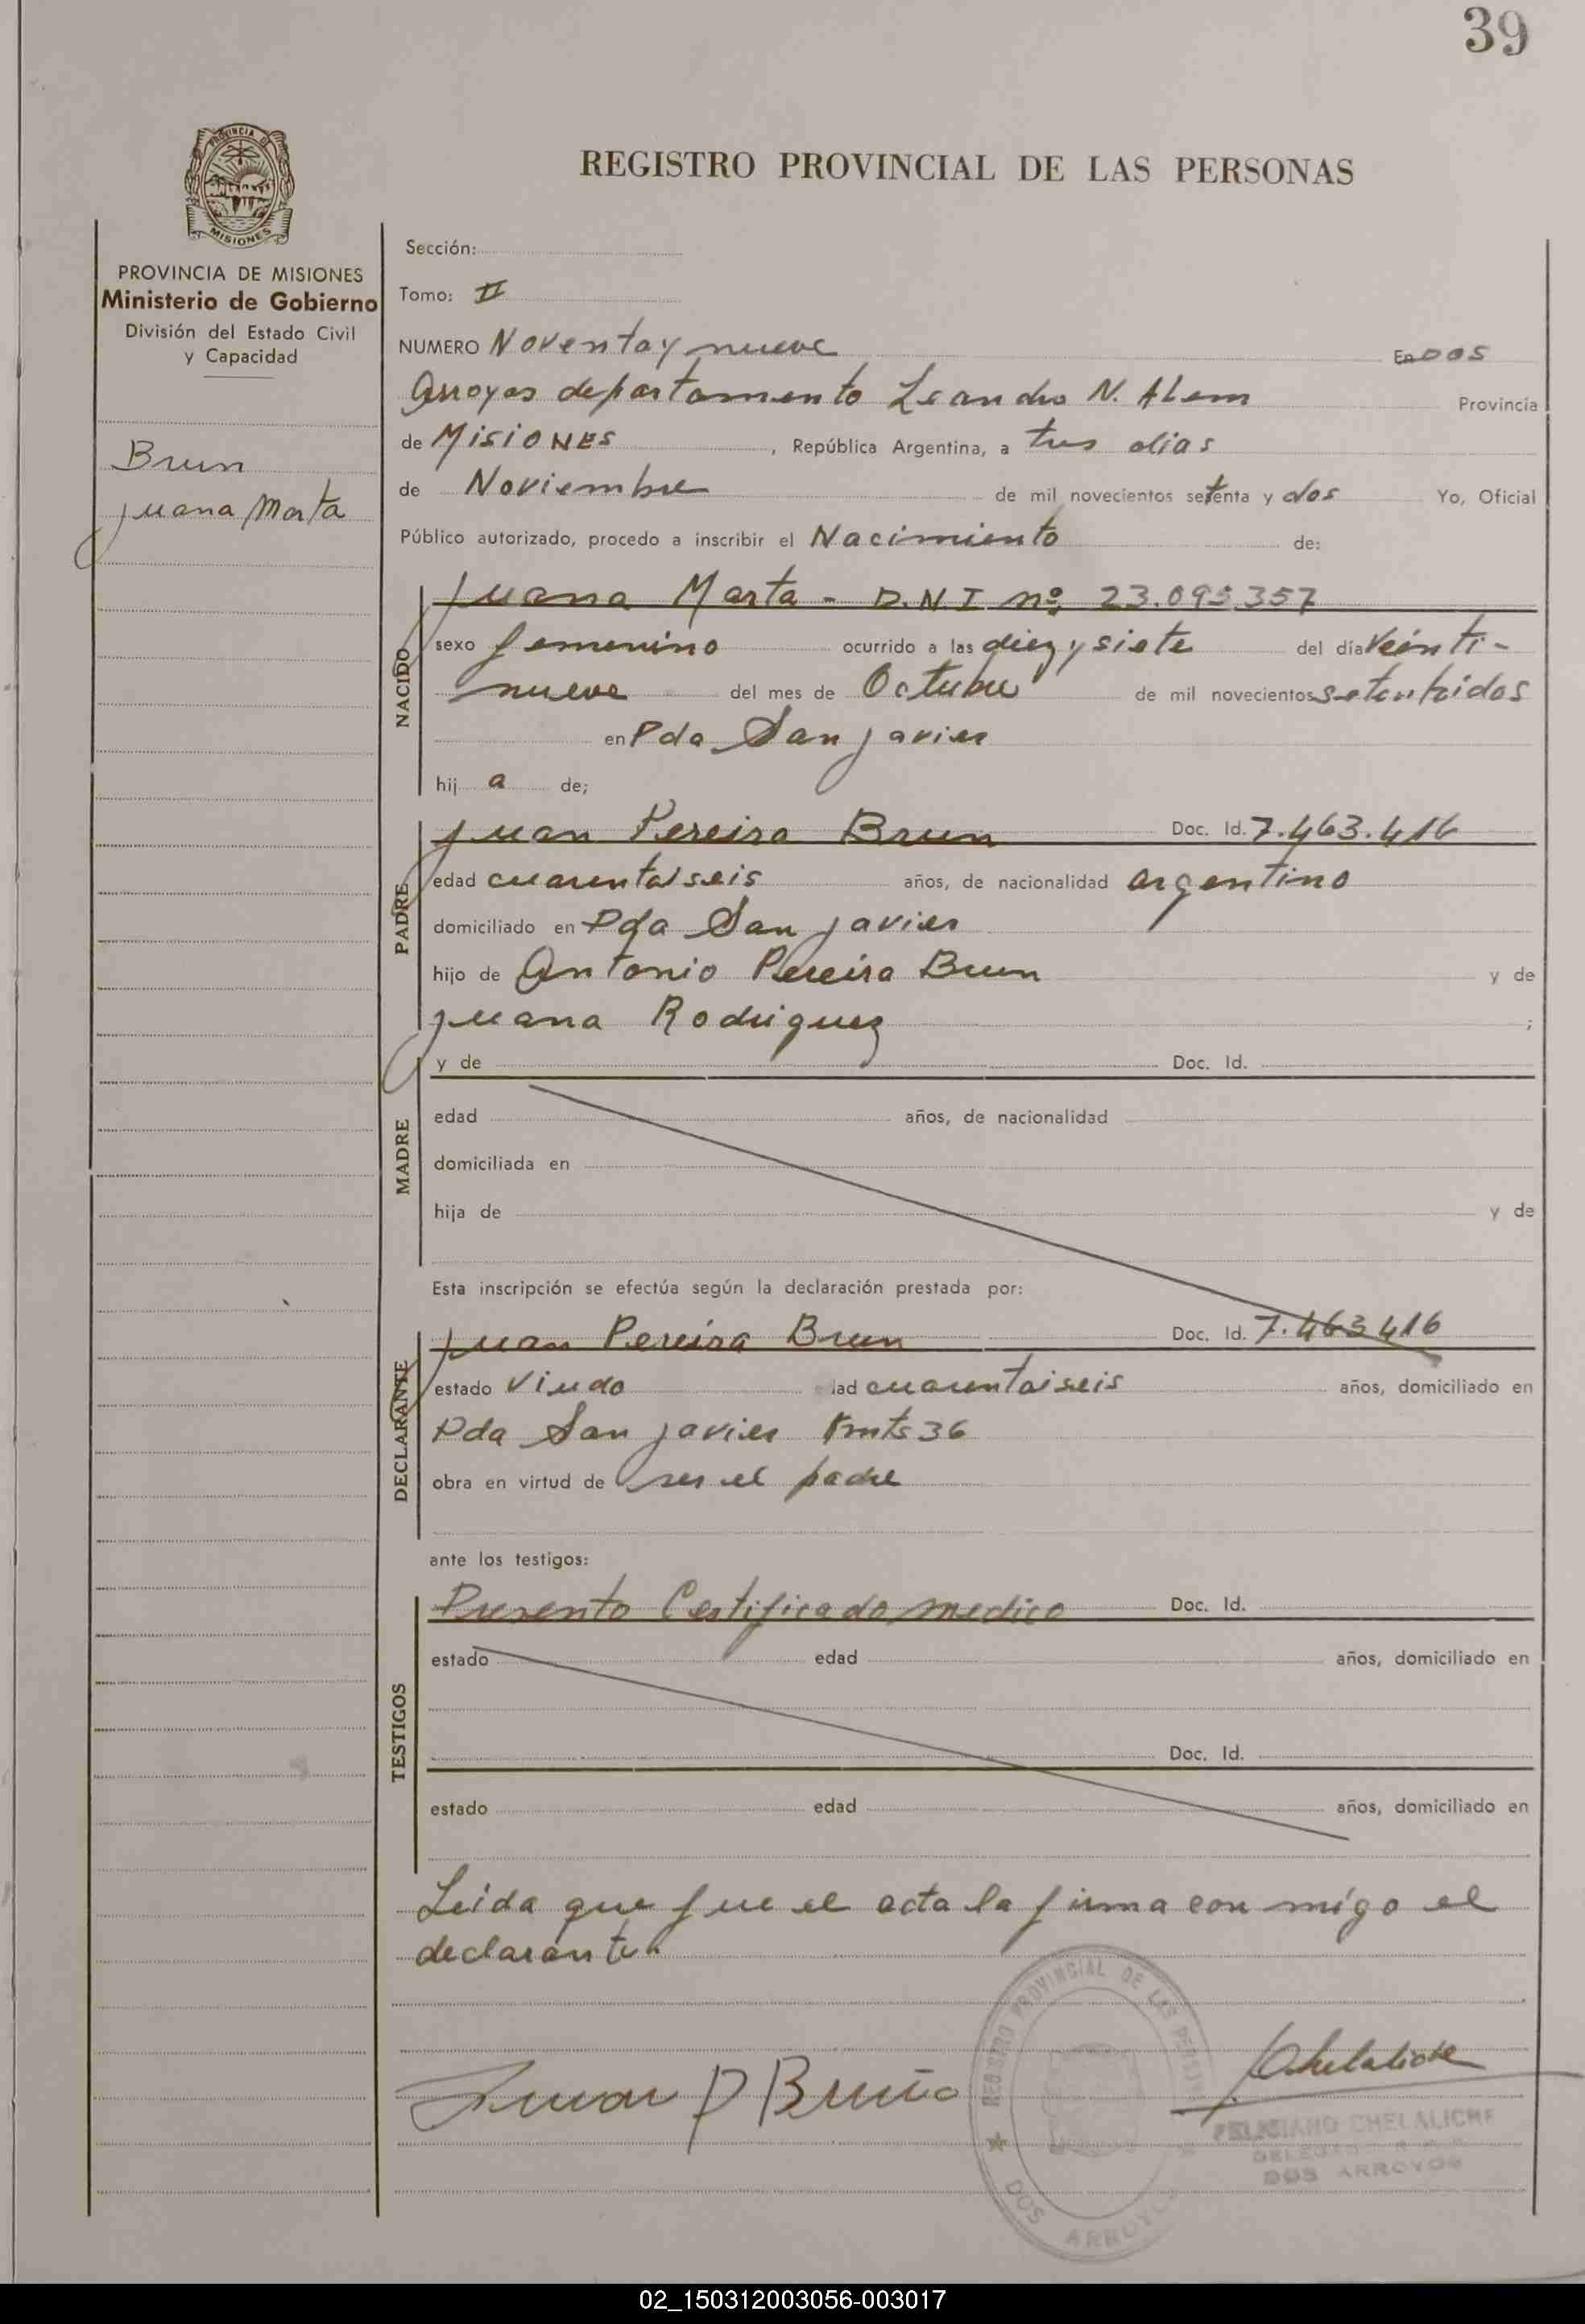 39
PROVINCIA DE
MISIONES
REGISTRO PROVINCIAL DE LAS PERSONAS
PROVINCIA DE MISIONES
Ministerio de Gobierno
División del Estado Civil
y Capacidad
Brun
Juana Marta
Sección:
Tomo: II
NUMERO Noventa y nueve En DOS
Arroyos departamento Leandro N. Alem Provincia
de MISIONES, República Argentina, a tres dias
de Noviembre de mil novecientos setenta y dos Yo, Oficial
Público autorizado, procedo a inscribir el Nacimiento de:
NACIDO
Juana Marta - D.N.I nº 23.095.357
sexo femenino ocurrido a las diez y siete del día veinti-
nueve del mes de Octubre de mil novecientos setentaidos
en Pda San Javier
hij a de;
PADRE
Juan Pereira Brun Doc. Id. 7.463.416
edad cuarentaiseis años, de nacionalidad argentino
domiciliado en Pda San Javier
hijo de Antonio Pereira Brun y de
Juana Rodriguez ;
MADRE
y de Doc. Id.
edad años, de nacionalidad
domiciliada en
hija de y de
Esta inscripción se efectúa según la declaración prestada por:
DECLARANTE
Juan Pereira Brun Doc. Id. 7.463416
estado Viudo dad cuarentaiseis años, domiciliado en
Pda San Javier Kmts 36
obra en virtud de ser el padre
ante los testigos:
TESTIGOS
Presento Certificado medico Doc. Id.
estado edad años, domiciliado en
Doc. Id.
estado edad años, domiciliado en
Leida que fue el acta la firma con migo el
declarante
Juan P Bruno
REGISTRO PROVINCIAL DE LAS PERSONAS
DOS ARROYOS
Chelaliche
FELICIANO CHELALICHE
DOS ARROYOS
02_150312003056-003017